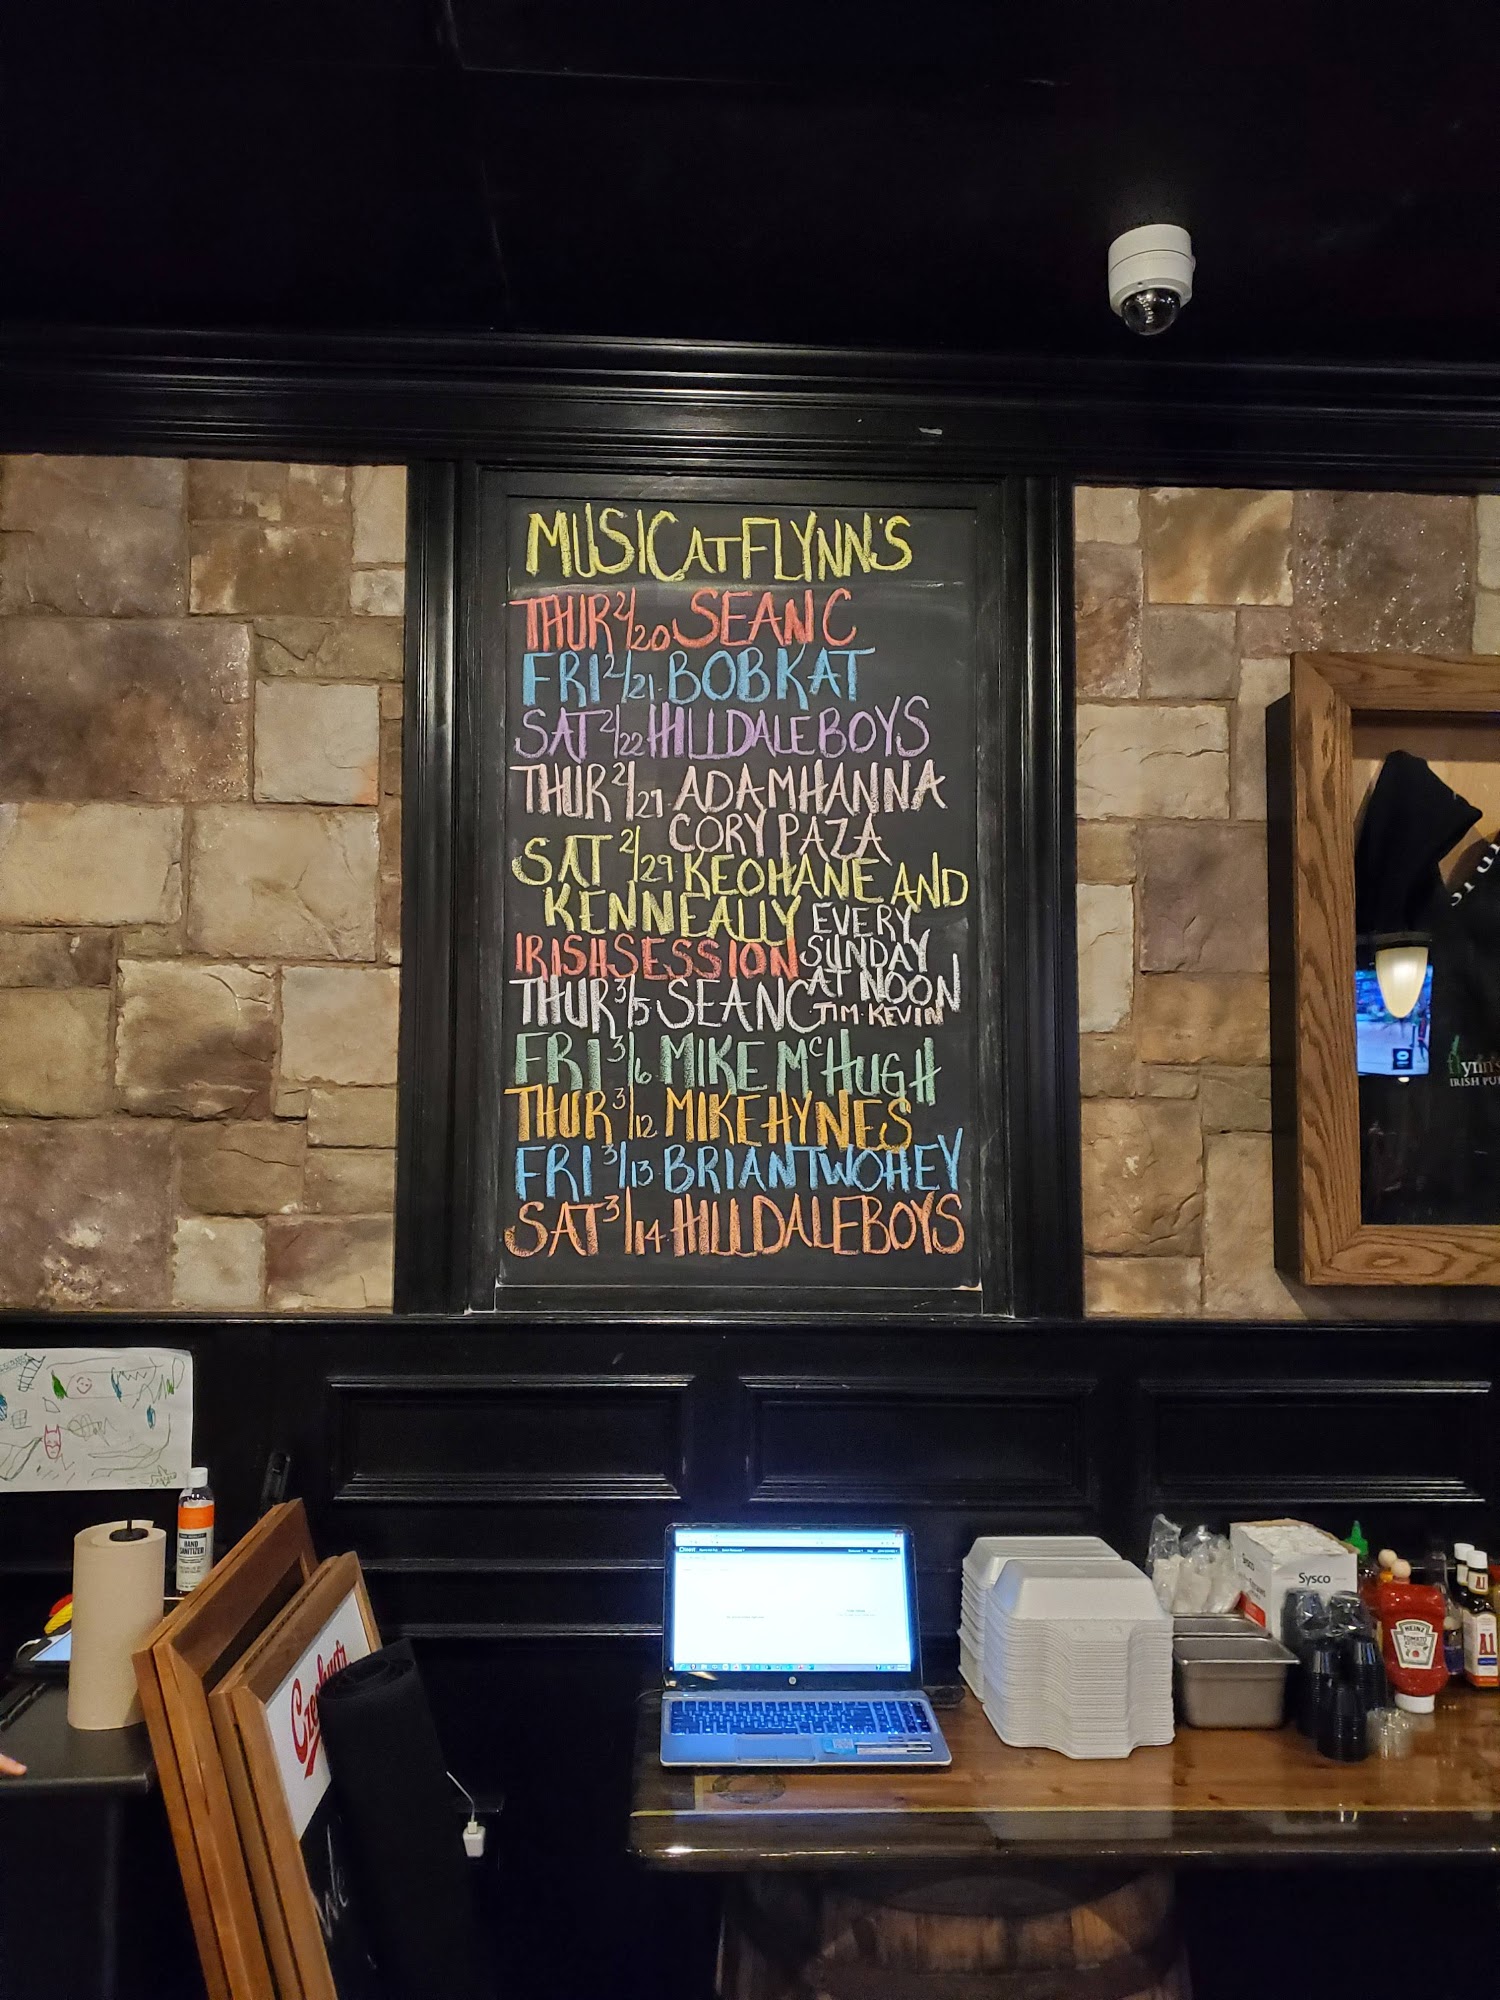 MUSIC AT FLYNN'S
THUR 2/20 SEAN C
FRI 2/21 BOBKAT
SAT 2/22 HILLDALE BOYS
THUR 2/27 ADAM HANNA
CORY PAZA
SAT 2/29 KEOHANE AND
KENNEALLY
IRISH SESSION
EVERY
SUNDAY
AT NOON
TIM · KEVIN
THUR 3/5 SEAN C
FRI 3/6 MIKE McHUGH
THUR 3/12 MIKE HYNES
FRI 3/13 BRIAN TWOHEY
SAT 3/14 HILLDALE BOYS
flynn's
IRISH PU
HAND
SANITIZER
Sysco
HEINZ
TOMATO
KETCHUP
A1
A1
hp